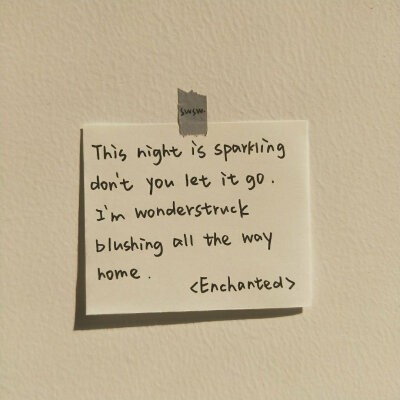 swsw.
This night is sparkling
don't you let it go.
I'm wonderstruck
blushing all the way
home.
<Enchanted>